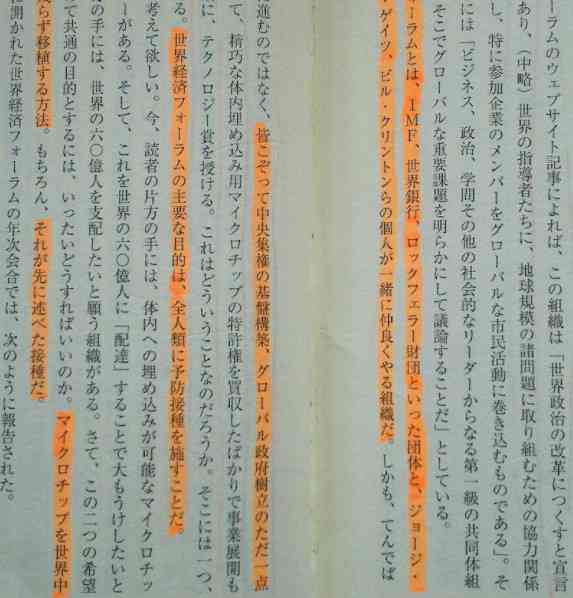 ーラムのウェブサイト記事によれば、この組織は「世界政治の改革につくすと宣言
あり、(中略)世界の指導者たちに、地球規模の諸問題に取り組むための協力関係
し、特に参加企業のメンバーをグローバルな市民活動に巻き込むものである」。そ
には「ビジネス、政治、学問その他の社会的なリーダーからなる第一級の共同体組
そこでグローバルな重要課題を明らかにして議論することだ」としている。
ォーラムとは、IMF、世界銀行、ロックフェラー財団といった団体と、ジョージ・
・ゲイツ、ビル・クリントンらの個人が一緒に仲良くやる組織だ。しかも、てんでば
進むのではなく、皆こぞって中央集権の基盤構築、グローバル政府樹立のただ一点
て、精巧な体内埋め込み用マイクロチップの特許権を買収したばかりで事業展開も
に、テクノロジー賞を授ける。これはどういうことなのだろうか。そこには一つ、
る。世界経済フォーラムの主要な目的は、全人類に予防接種を施すことだ。
考えて欲しい。今、読者の片方の手には、体内への埋め込みが可能なマイクロチッ
ーがある。そして、これを世界の六〇億人に「配達」することで大もうけしたいと
の手には、世界の六〇億人を支配したいと願う組織がある。さて、この二つの希望
って共通の目的とするには、いったいどうすればいいのか。マイクロチップを世界中
らず移植する方法。もちろん、それが先に述べた接種だ。
に開かれた世界経済フォーラムの年次会合では、次のように報告された。